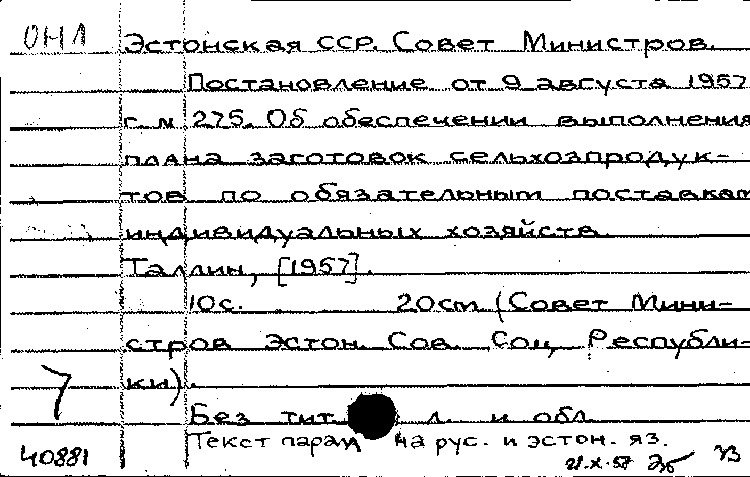 ОНЛ Эстонская ССР. Совет Министров.
Постановление от 9 августа 1957
г. № 275. Об обеспечении выполнения
плана заготовок сельхозпродук-
тов по обязательным поставкам
индивидуальных хозяйств.
Таллин, [1957].
10с. 20см (Совет Мини-
стров Эстон. Сов. Соц. Республи-
ки).
Без тит. л. и обл.
Текст парал. на рус. и эстон. яз.
40881